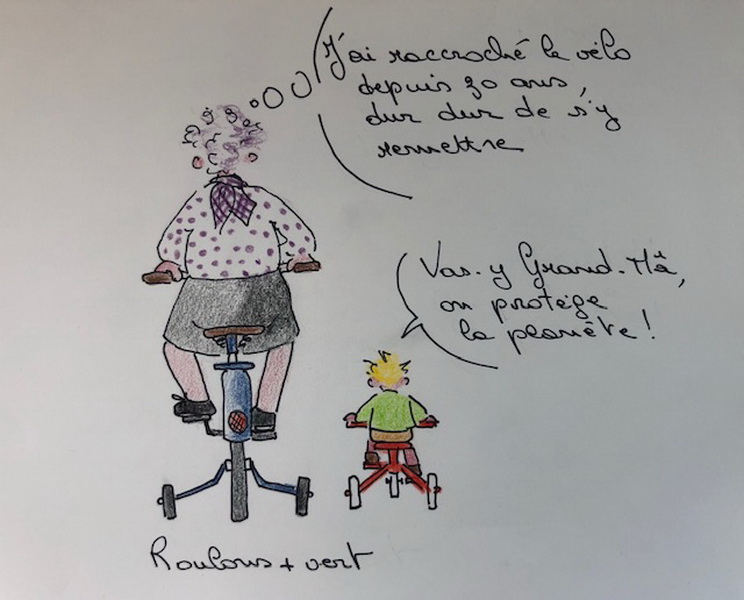 J'ai raccroché le vélo
depuis 30 ans,
dur dur de s'y
remettre
Vas-y Grand-Mâ,
on protège
la planète !
Roulons + vert